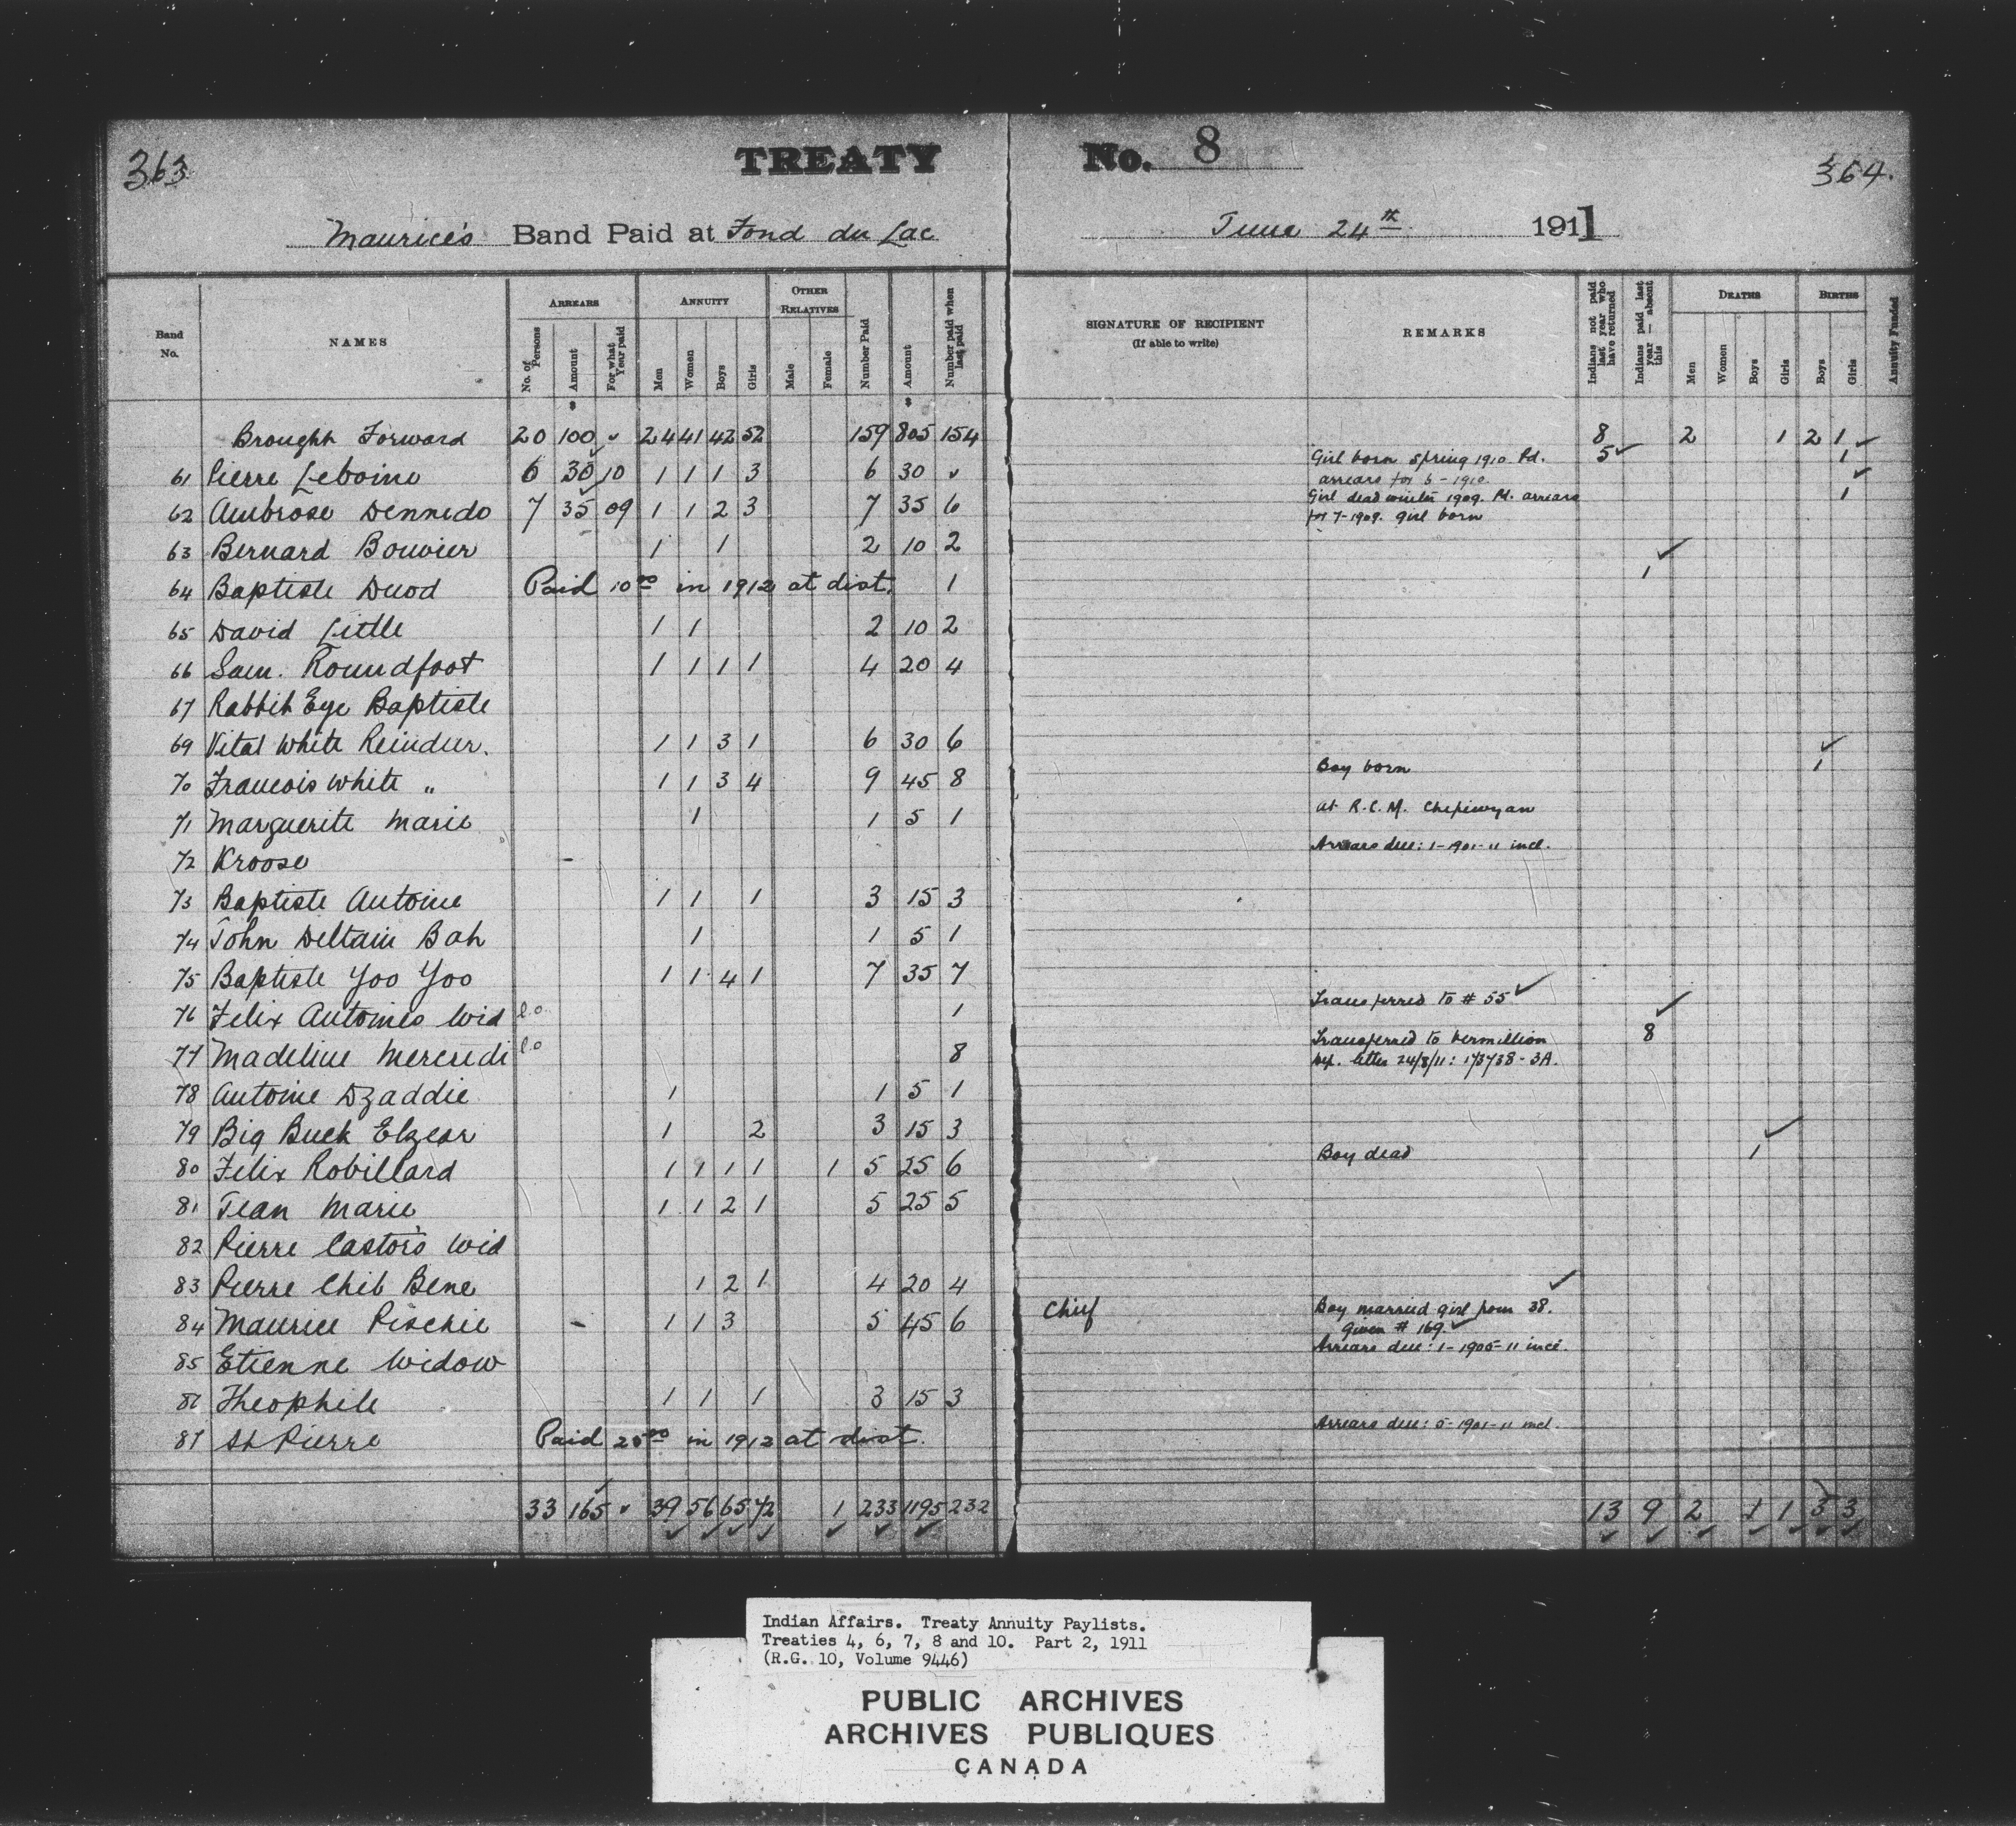 363
TREATY No. 8
364.
Maurice's Band Paid at Fond du Lac June 24th 1911
Band No. NAMES ARREARS No. of Persons Amount For what Year paid ANNUITY Men Women Boys Girls OTHER RELATIVES Male Female Number Paid Amount Number paid when last paid SIGNATURE OF RECIPIENT (If able to write) REMARKS Indians not paid last year who have returned Indians paid last year — absent this DEATHS Men Women Boys Girls BIRTHS Boys Girls Annuity Funded
$ $
Brought Forward 20 100 ✓ 24 41 42 52 159 805 154 8 2 1 2 1 ✓
61 Pierre Leboine 6 30 10 1 1 1 3 6 30 ✓ Girl born spring 1910. Pd. 5 ✓ 1
arrears for 6-1910.
62 Ambrose Dennedo 7 35 09 1 1 2 3 7 35 6 Girl dead winter 1909. Pd. arrears 1
for 7-1909. girl born
63 Bernard Bouvier 1 1 2 10 2
64 Baptiste Duod Paid 10.00 in 1912 at dist. 1 1
65 David Little 1 1 2 10 2
66 Sam. Roundfoot 1 1 1 1 4 20 4
67 Rabbit Eye Baptiste
69 Vital White Reindeer. 1 1 3 1 6 30 6
70 Francois White „ 1 1 3 4 9 45 8 Boy born 1
71 Marguerite Marie 1 1 5 1 at R.C.M. Chepiwyan
72 Kroose Arrears due: 1-1901-11 incl.
73 Baptiste Antoine 1 1 1 3 15 3
74 John Deltain Bah 1 1 5 1
75 Baptiste Yoo Yoo 1 1 4 1 7 35 7
76 Felix Antoine's Wid c.o. 1 Transferred to # 55 ✓
77 Madeline Mercredi c.o 8 Transferred to Vermillion 8
Dep. letter 24/8/11: 173738-3A.
78 Antoine Dzaddie 1 1 5 1
79 Big Buck Elzear 1 2 3 15 3
80 Felix Robillard 1 1 1 1 1 5 25 6 Boy dead 1
81 Jean Marie 1 1 2 1 5 25 5
82 Pierre Castor's Wid
83 Pierre Chib Bene 1 2 1 4 20 4
84 Maurice Pischie 1 1 3 5 45 6 Chief Boy married girl from 38.
given # 169. ✓
85 Etienne Widow Arrears due: 1-1905-11 incl.
86 Theophile 1 1 1 3 15 3
87 St Pierre Paid 25.00 in 1912 at dist. Arrears due: 5-1901-11 incl.
33 165 ✓ 39 56 65 72 1 233 1195 232 13 9 2 1 1 3 3
Indian Affairs. Treaty Annuity Paylists.
Treaties 4, 6, 7, 8 and 10. Part 2, 1911
(R.G. 10, Volume 9446)
PUBLIC ARCHIVES
ARCHIVES PUBLIQUES
CANADA